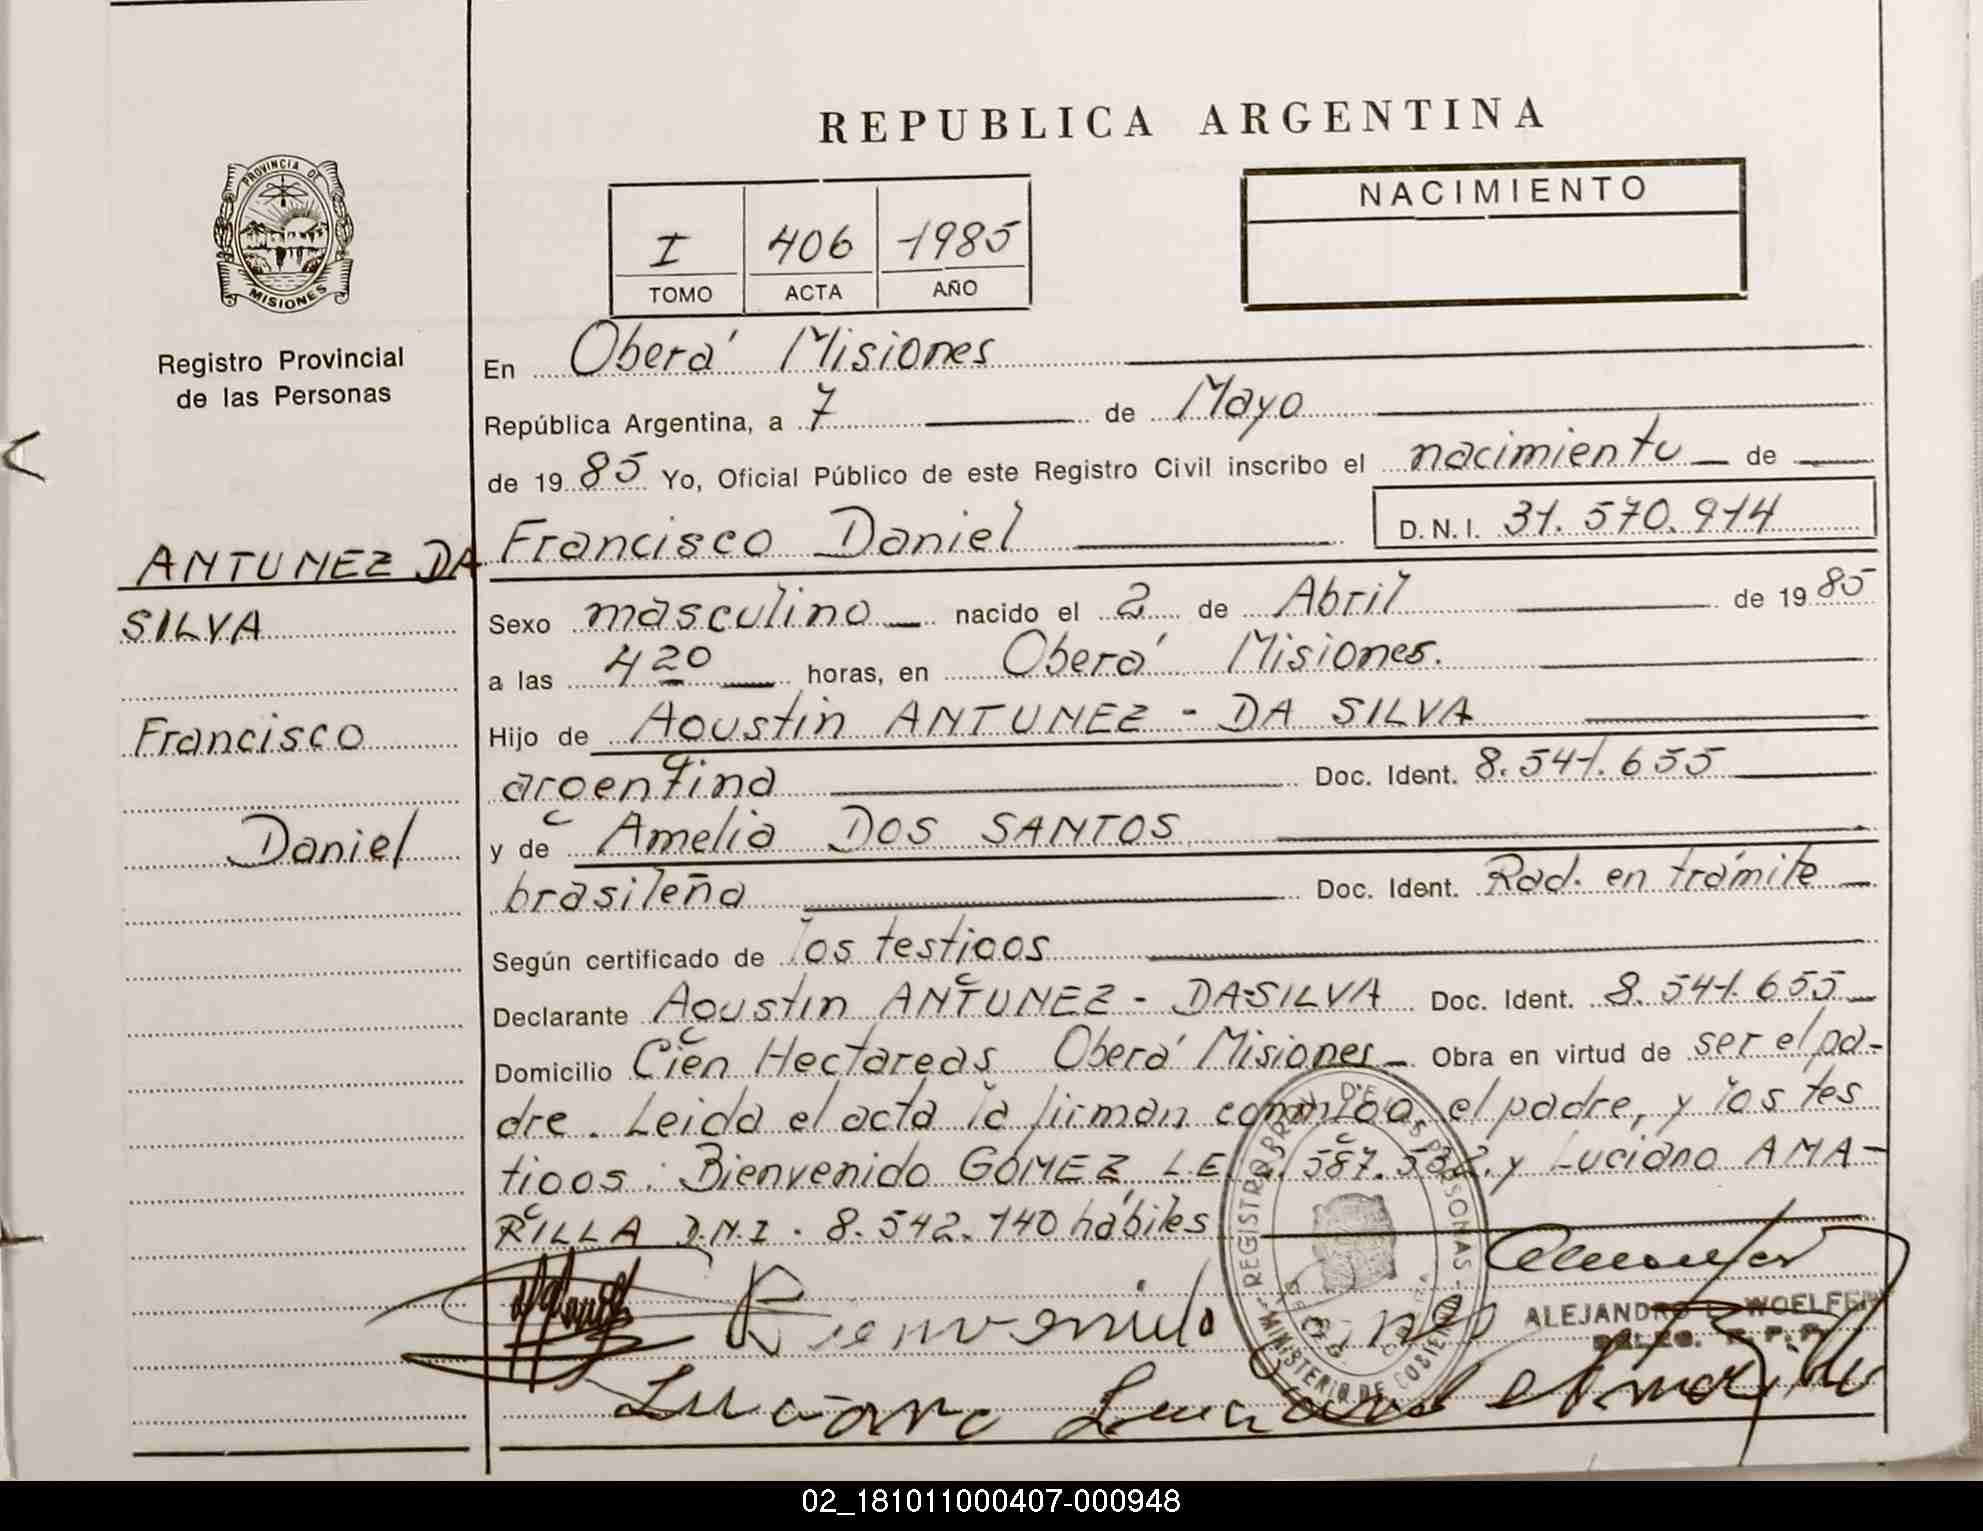 REPUBLICA ARGENTINA
PROVINCIA DE
MISIONES
Registro Provincial
de las Personas
I 406 1985
TOMO ACTA AÑO
NACIMIENTO
En Oberá Misiones
República Argentina, a 7 de Mayo
de 1985 Yo, Oficial Público de este Registro Civil inscribo el nacimiento de
Francisco Daniel D.N.I. 31.570.914
ANTUNEZ DA
SILVA
Francisco
Daniel
Sexo masculino nacido el 2 de Abril de 1985
a las 4 20 horas, en Oberá Misiones.
Hijo de Agustin ANTUNEZ - DA SILVA
argentina Doc. Ident. 8.541.655
y de Amelia DOS SANTOS
brasileña Doc. Ident. Rad. en trámite
Según certificado de los testigos
Declarante Agustin ANTUNEZ - DA SILVA Doc. Ident. 8.541.655
Domicilio Cien Hectareas Oberá Misiones Obra en virtud de ser el pa-
dre. Leida el acta la firman conmigo, el padre, y los tes
tigos: Bienvenido GÓMEZ L.E. 587.532. y Luciano AMA-
RILLA D.N.I. 8.542.140 hábiles
REGISTRO PROV. DE LAS PERSONAS
MINISTERIO DE GOBIERNO
Bienvenido
ALEJANDRO WOELFERT
Luciano Luciano Amarilla
02_181011000407-000948